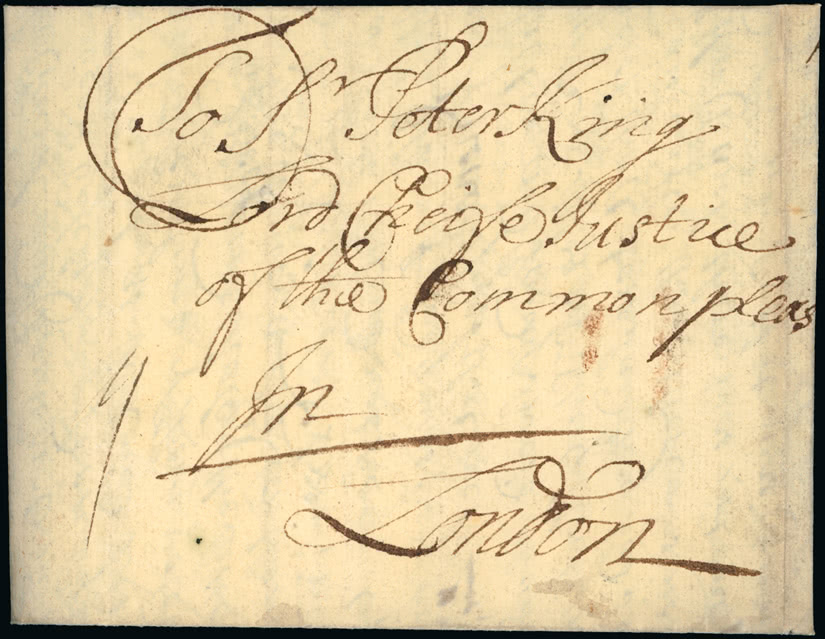 To Sr Peter King
Lord Cheife Justice
of the Common pleas
In
London